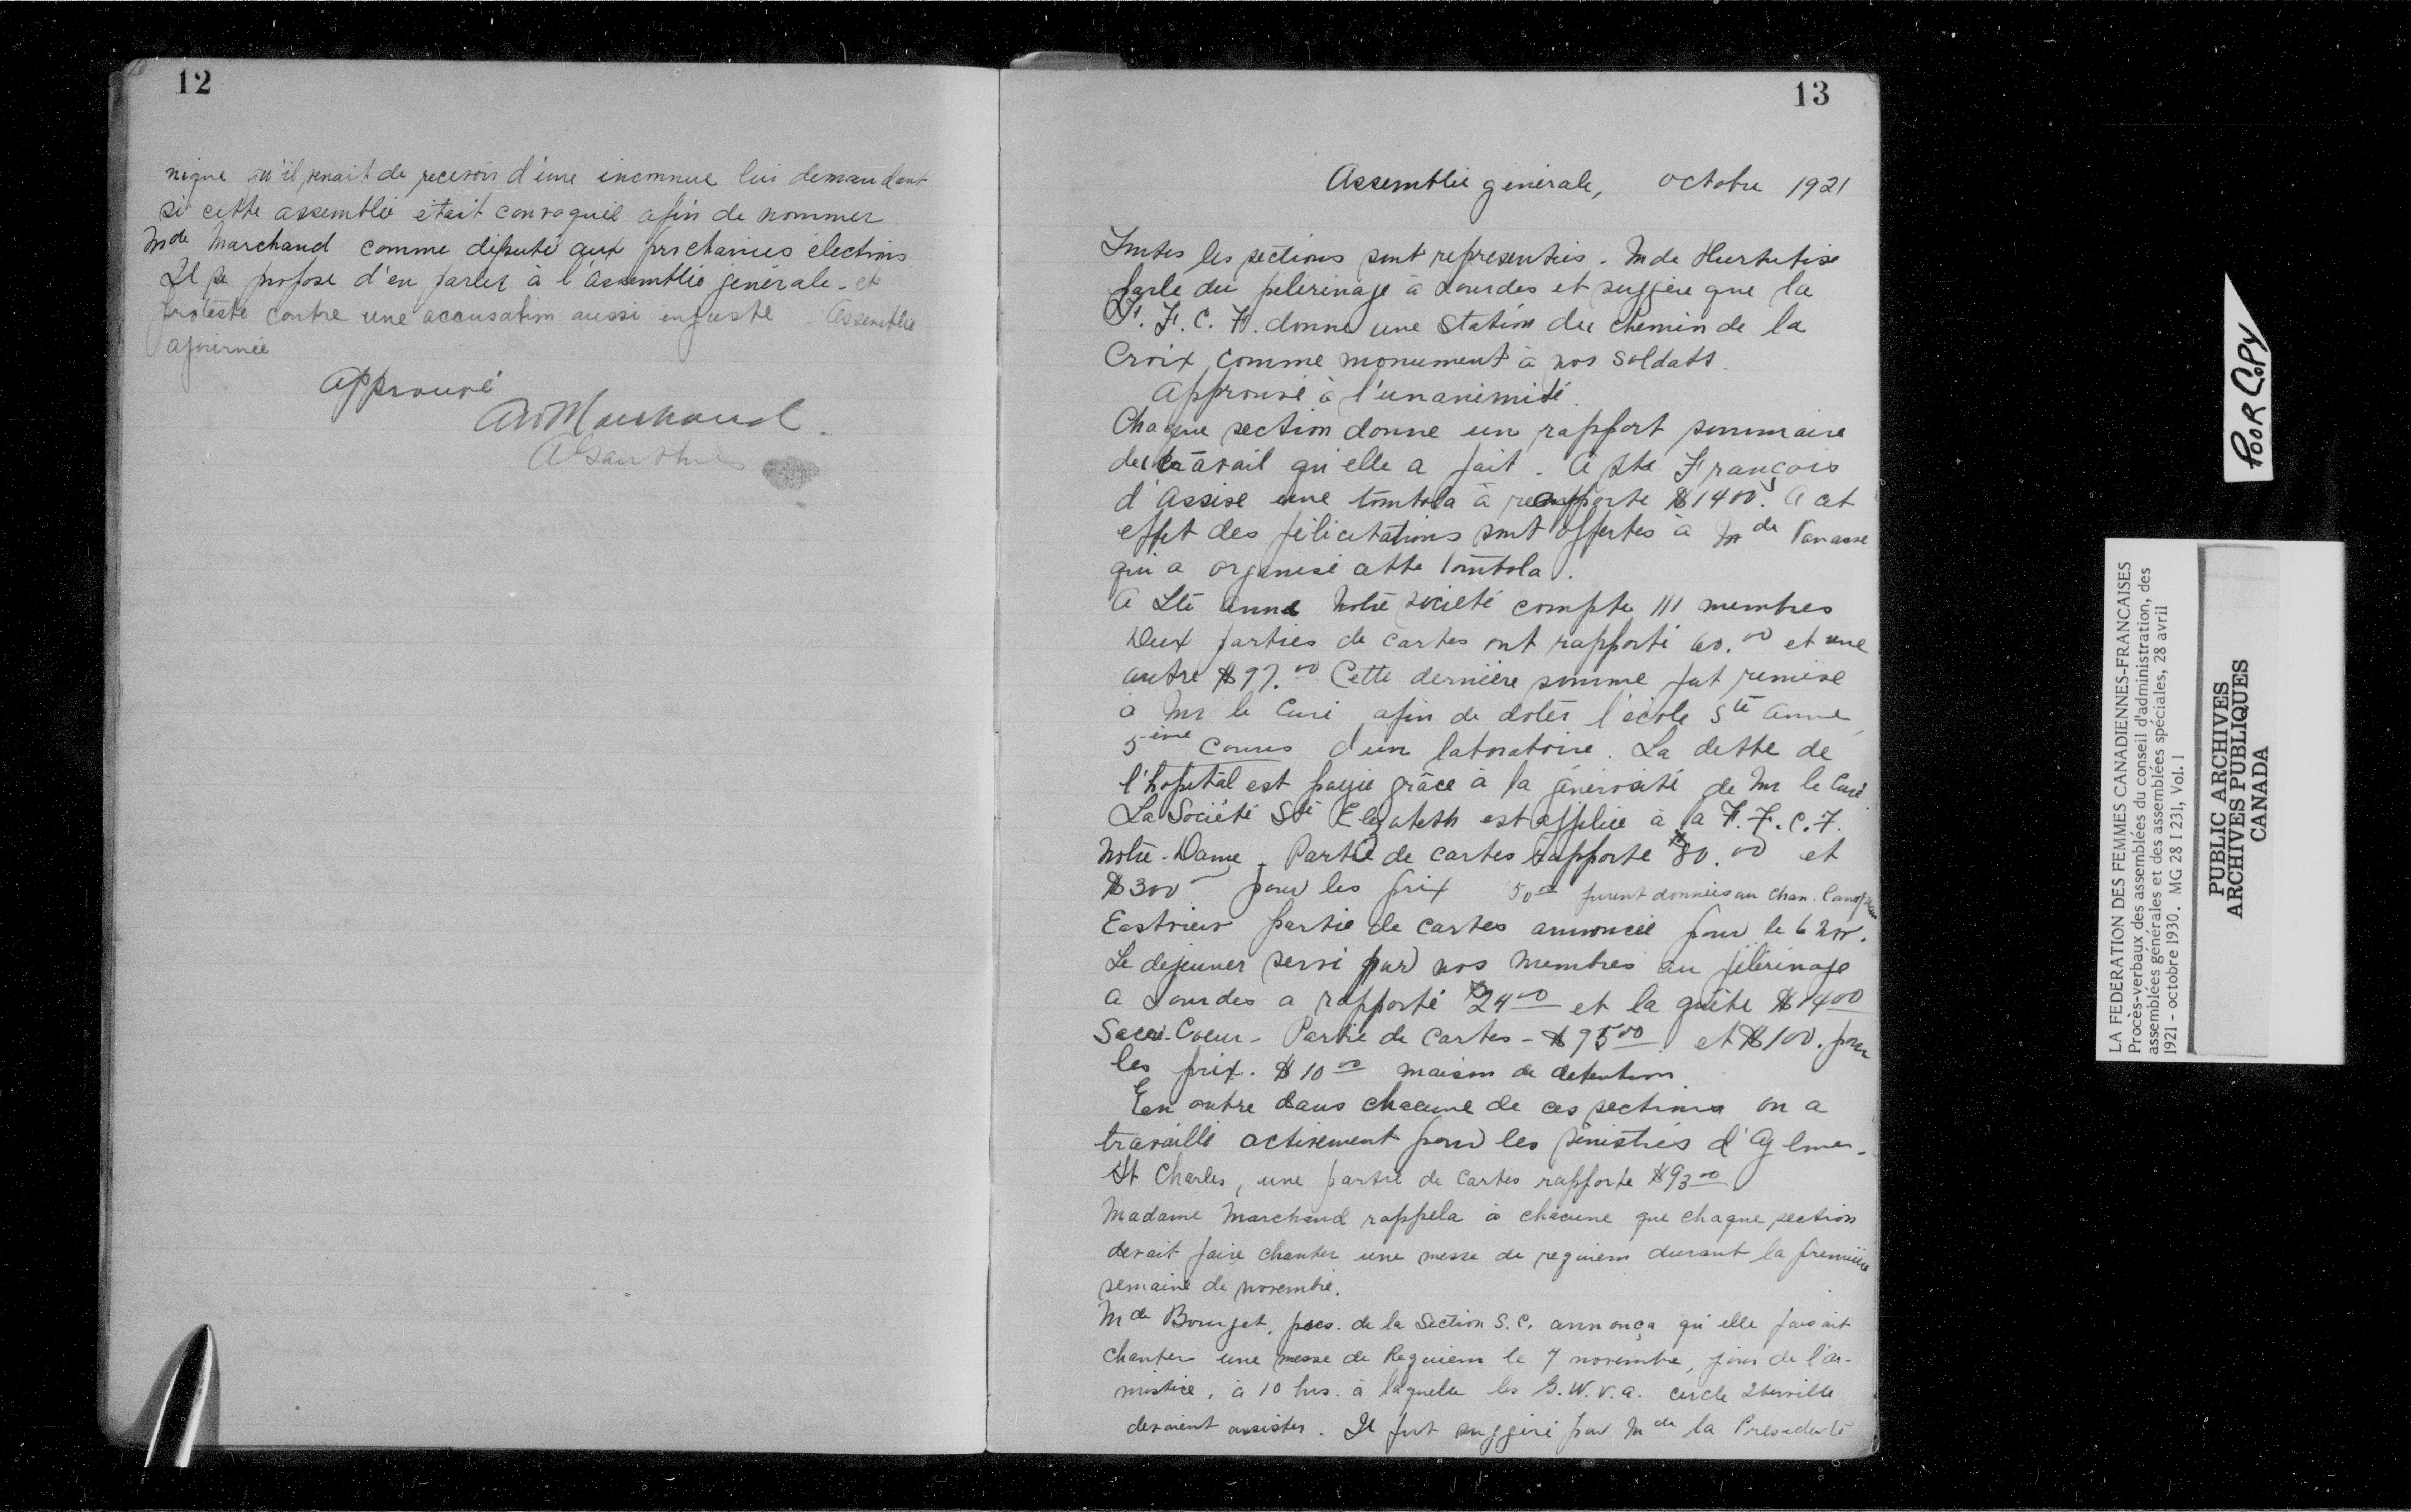 12
nique qu'il venait de recevoir d'une inconnue lui demandant
si cette assemblée était convoquée afin de nommer
Mde Marchand comme député aux prochaines élections
Il se propose d'en parler à l'Assemblée générale - et
proteste contre une accusation aussi injuste - Assemblée
ajournée
Approuvé
AWMarchand.
AGauthier
13
Assemblée générale, octobre 1921
Toutes les sections sont representées. Mde Hurtubise
parle du pélerinage à Lourdes et suggère que la
F. F. C. F. donne une Station du Chemin de la
Croix, comme monument à nos soldats.
Approuvé à l'unanimité.
Chaque section donne un rapport sommaire
du travail qu'elle a fait. A St. François
d'Assise une tombola à rapporte $1400. A cet
effet des félicitations sont offertes à Mde Vanasse
qui a organisé cette tombola.
A Ste Anne Notre société compte 111 membres
Deux parties de cartes ont rapporté 60.00 et une
autre $97.00 Cette dernière somme fut remise
à Mr le Curé afin de doter l'école Ste Anne
5ième Cours d'un laboratoire. La dette de
l'hopitâl est payée grâce à la générosité de Mr le Curé
La Société Ste Elizabeth est affiliée à la F. F. C. F.
Notre-Dame. Partie de cartes rapporte $80.00 et
$300 pour les prix 50.00 furent données au Chan. Campeau
Eastview partie de cartes annoncée pour le 6 Nov.
Le dejeuner servi par nos membres au pélérinage
a Lourdes a rapporté $24.00 et la quête $14.00
Sacré-Coeur - Partie de Cartes - $95.00 et $100. pour
les prix. $10.00 maison de detention.
En outre dans chacune de ces sections on a
travaillé activement pour les sinistrés d'Aylmer.
St Charles, une partie de Cartes rapporte $93.00
Madame Marchand rappela à chacune que chaque section
devait faire chanter une messe de requiem durant la première
semaine de novembre.
Mde Bourget, pres. de la Section S.C. annonça qu'elle faisait
chanter une messe de Requiem le 7 novembre, jour de l'ar-
mistice, à 10 hrs. à laquelle les G.W.V.A. cercle Iberville
devaient assister. Il fut suggéré par Mde la Présidente
POOR COPY
LA FEDERATION DES FEMMES CANADIENNES-FRANCAISES
Procès-verbaux des assemblées du conseil d'administration, des
assemblées générales et des assemblées spéciales, 28 avril
1921 - octobre 1930. MG 28 I 231, Vol. 1
PUBLIC ARCHIVES
ARCHIVES PUBLIQUES
CANADA